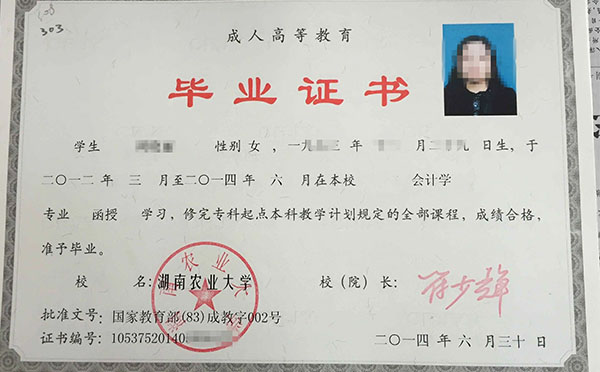 303
成人高等教育
毕业证书
学生 性别 女 ，一九 三 年 月 日生，于
二〇一二 年 三 月至二〇一四 年 六 月在本校 会计学
专业 函授 学习，修完专科起点本科教学计划规定的全部课程，成绩合格，
准予毕业。
校 名：湖南农业大学 校（院）长：
批准文号：国家教育部(83)成教字002号
证书编号：10537520140
二〇一四 年 六 月三十 日